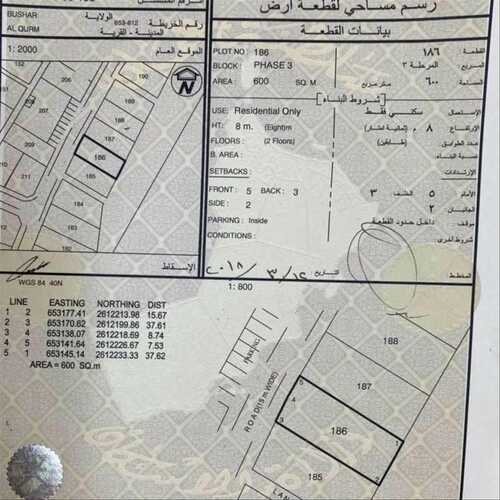 رسم مساحي لقطعة ارض
بيانات القطعة
BUSHAR الولاية
AL QURM المدينة - القرية
653-612 رقم الخريطة
1: 2000 الموقع العام
PLOT NO : 186 ١٨٦ القطعة
BLOCK : PHASE 3 المرحلة ٣ المربع
AREA : 600 SQ. M ٦٠٠ متر مربع المساحة
شروط البناء
USE: Residential Only سكني فقط الإستعمال
HT: 8 m. (Eight)m ٨ (ثمانية امتار) الإرتفاع
FLOORS : (2 Floors) (طابقين) عدد الطوابق
B. AREA : نسبة البناء
SETBACKS : الإرتدادات
FRONT : 5 BACK : 3 ٣ الخلف ٥ الأمام
SIDE : 2 ٢ الجانبين
PARKING : Inside داخل حدود القطعة موقف
CONDITIONS : شروط اخرى
التاريخ ٢٠١٨/٣/١٢
المخطط
190
206
207
208
209
210
211
187
186
185
N
الإسقاط
WGS 84 40N
LINE EASTING NORTHING DIST
1 2 653177.41 2612213.98 15.67
2 3 653170.62 2612199.86 37.61
3 4 653138.07 2612218.69 8.74
4 5 653141.64 2612226.67 7.53
5 1 653145.14 2612233.33 37.62
AREA = 600 SQ.m
1: 800
PARKING
ROAD(15 m WIDE)
188
187
186
185
5
4
3
1
2
LAN